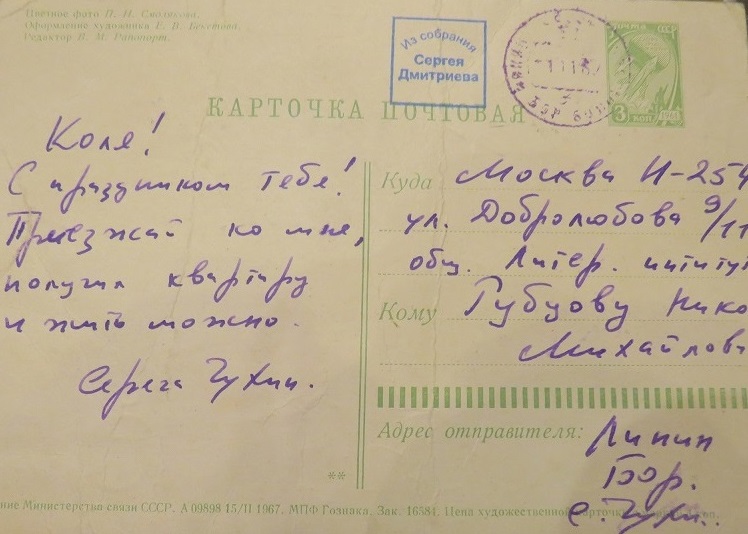 Цветное фото П. И. Смолякова.
Оформление художника Е. В. Бекетова.
Редактор В. М. Рапопорт.
Из собрания
Сергея
Дмитриева
ПОЧТА СССР
3 КОП
КАРТОЧКА ПОЧТОВАЯ
Коля!
С праздником тебе!
Приезжай ко мне,
получил квартиру
и жить можно.
Серега Чухин.
Куда Москва И-254
ул. Добролюбова 9/11
общ. Литер. интитут
Кому Рубцову Нико
Михайлови
Адрес отправителя: Липин
Бор.
с. Чухи..
**
ние Министерства связи СССР. А 09898 15/II 1967. МПФ Гознака. Зак. 16584. Цена художественной карточки